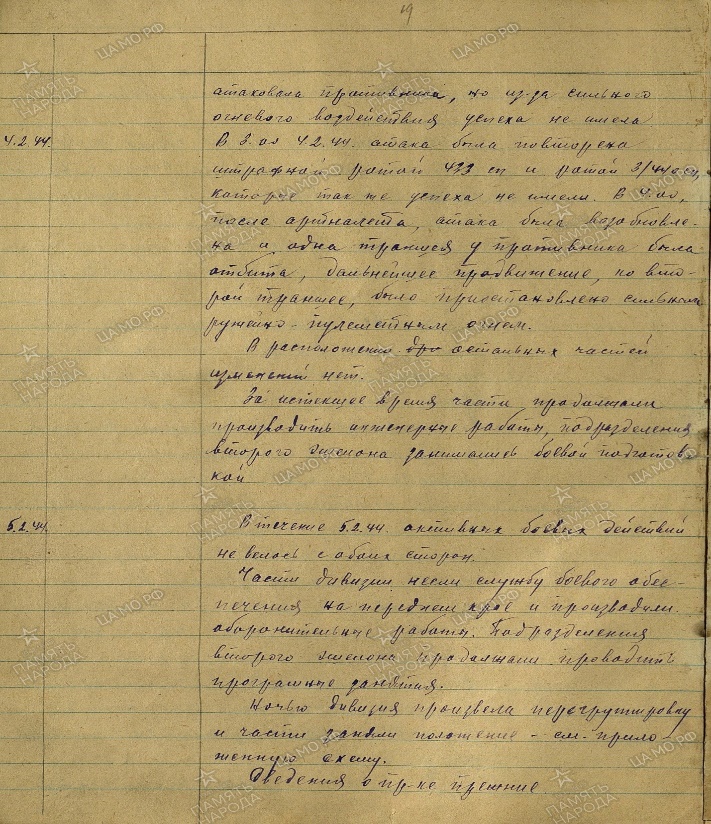 19
атаковала противника, но из-за сильного
огневого воздействия успеха не имела
4.2.44. В 3.00 4.2.44. атака была повторена
штрафной ротой 433 сп и ротой
которые так же успеха не имели. В 4.00,
после артналета, атака была возобновле-
на и одна траншея у противника была
отбита, дальнейшее продвижение, ко вто-
рой траншее, было приостановлено сильным
ружейно-пулеметным огнем.
В расположении остальных частей
изменений нет.
За истекшее время части продолжали
производить инженерные работы, подразделения
второго эшелона занимались боевой подготов-
кой
5.2.44. В течение 5.2.44. активных боевых действий
не велось с обоих сторон.
Части дивизии несли службу боевого обес-
печения на переднем крае и производили
оборонительные работы. Подразделения
второго эшелона продолжали проводить
програмные занятия.
Ночью дивизия произвела перегруппировку
и части заняли положение - см. прило-
женную схему.
Сведения о пр-ке прежние